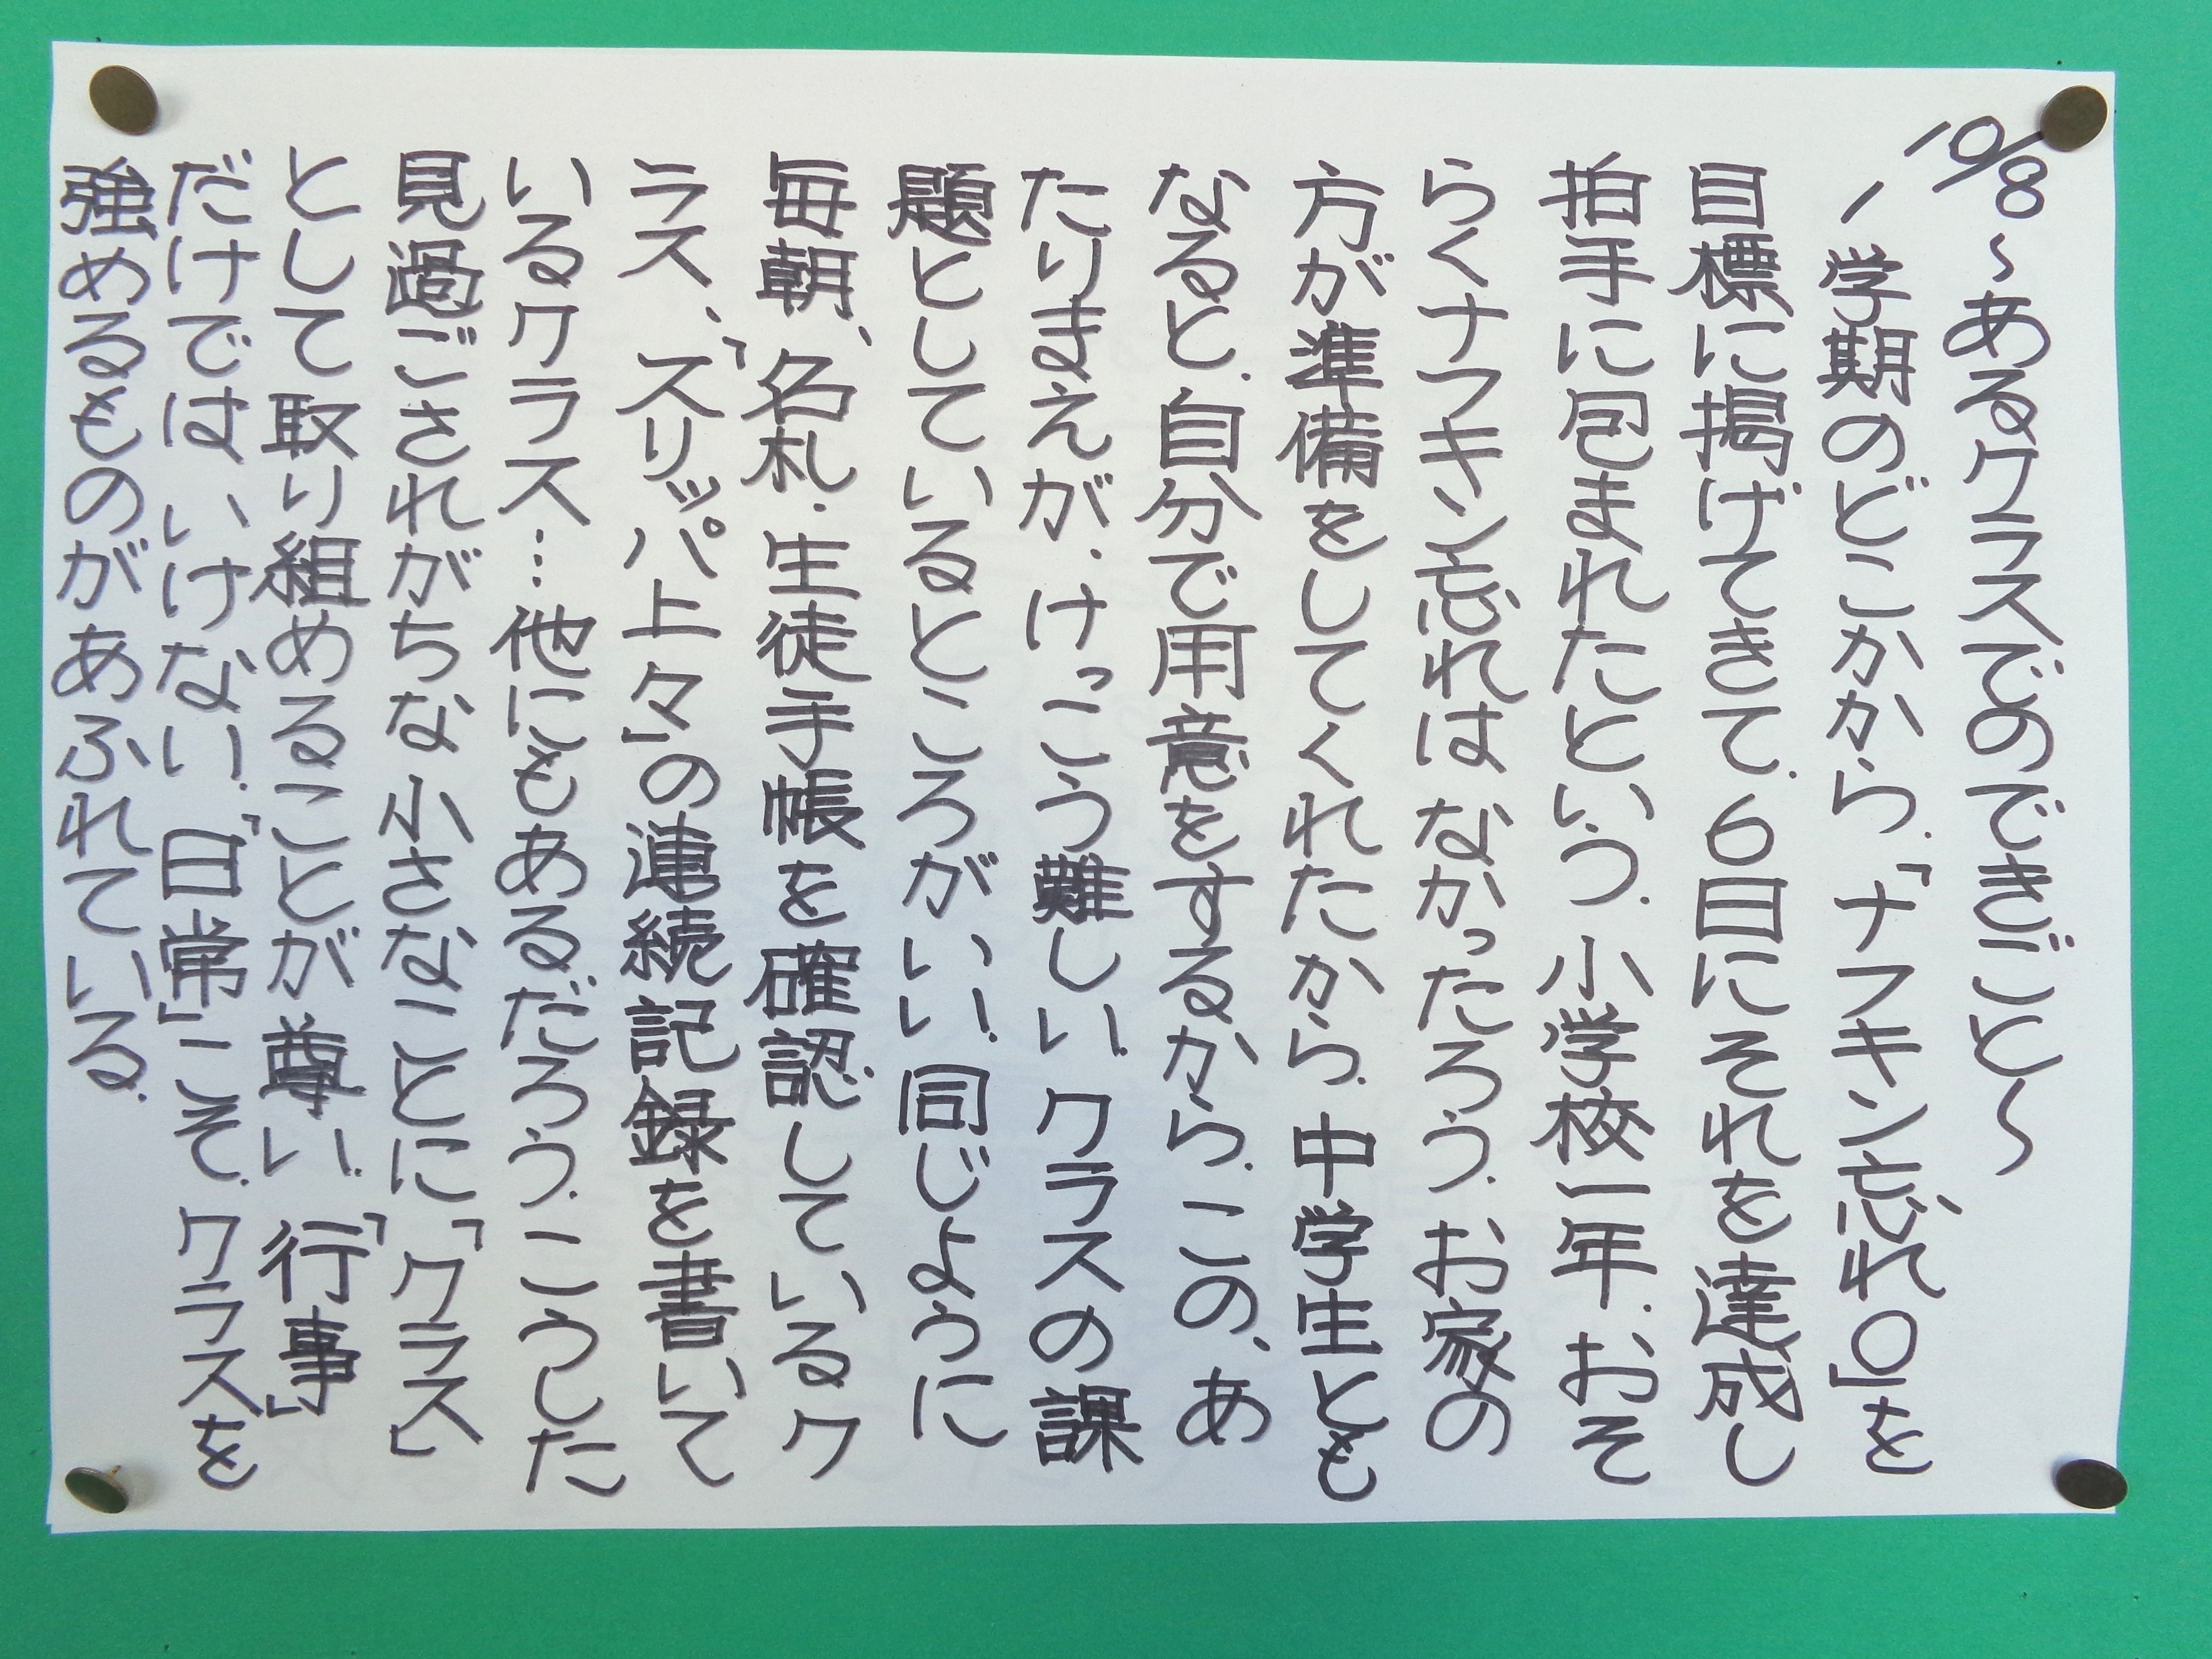 10/8 〜あるクラスでのできごと〜
1学期のどこかから、「ナフキン忘れ0」を
目標に掲げてきて、6日にそれを達成し
拍手に包まれたという。小学校一年、おそ
らくナフキン忘れはなかったろう。お家の
方が準備をしてくれたから。中学生とも
なると、自分で用意をするから、この、あ
たりまえが、けっこう難しい。クラスの課
題としているところがいい。同じように
毎朝、名札・生徒手帳を確認しているク
ラス、「スリッパ上々」の連続記録を書いて
いるクラス…他にもあるだろう。こうした
見過ごされがちな小さなことに「クラス」
として取り組めることが尊い。「行事」
だけではいけない。「日常」こそ、クラスを
強めるものがあふれている。